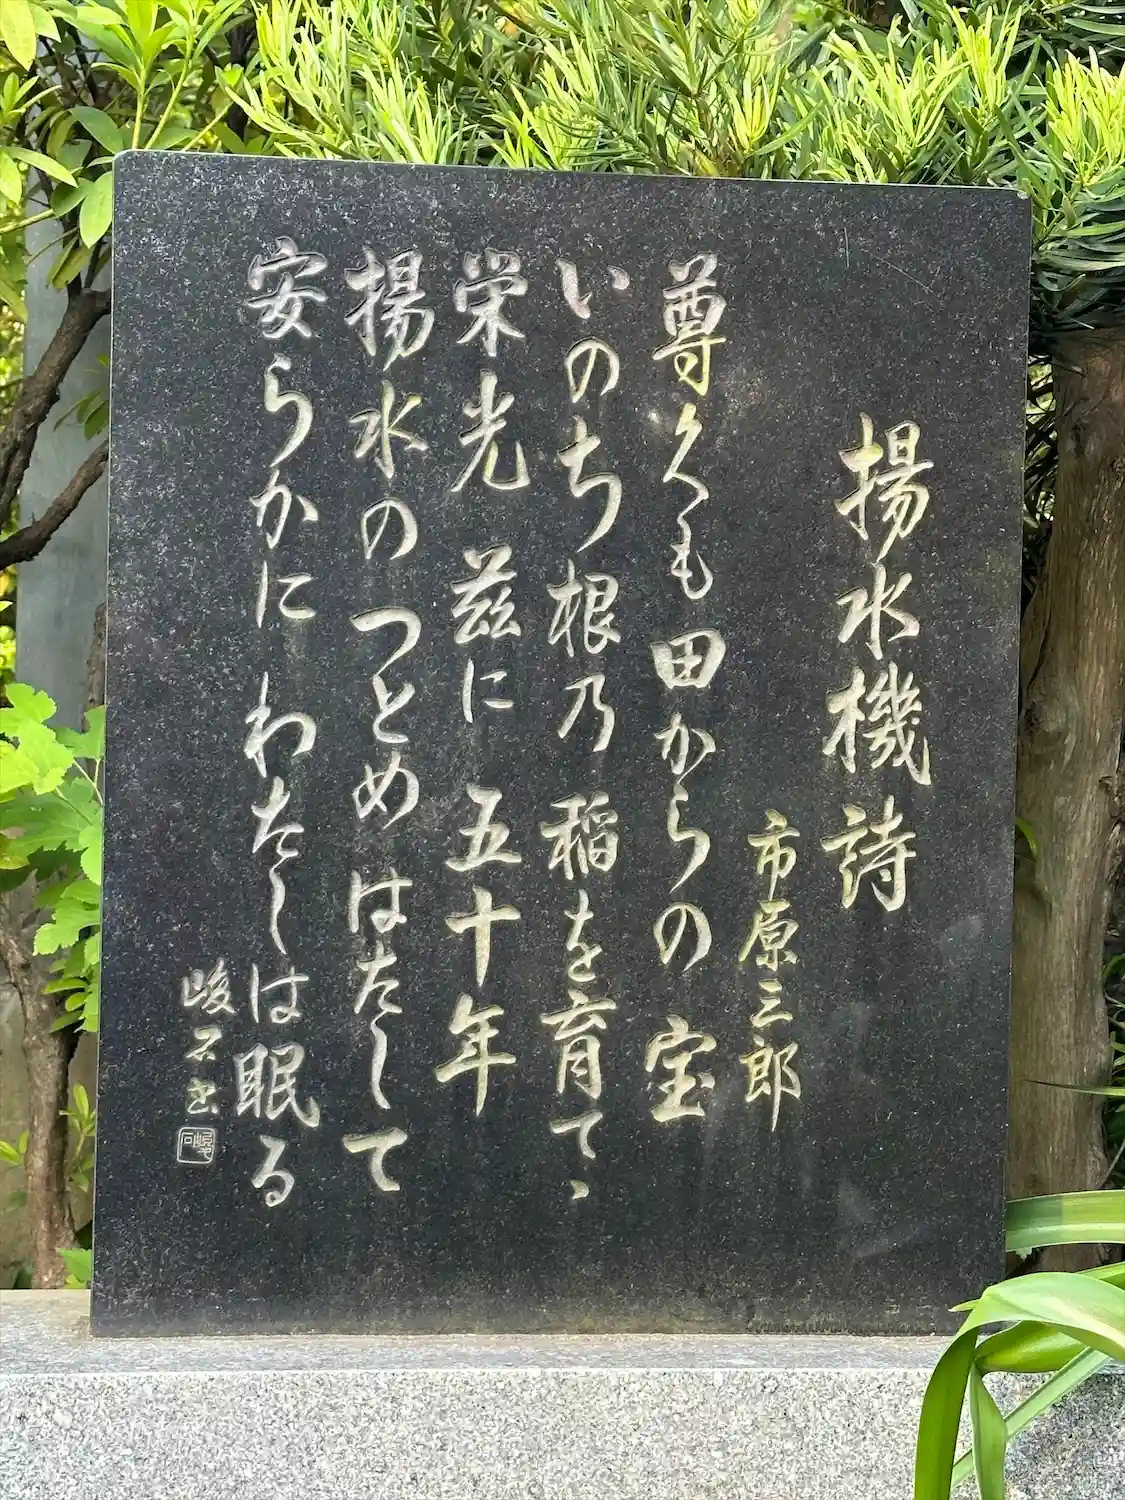 揚水機詩
市原三郎
尊くも田からの宝
いのち根乃稲を育て、
栄光 茲に 五十年
揚水の つとめはたして
安らかに わたしは眠る
峻石書